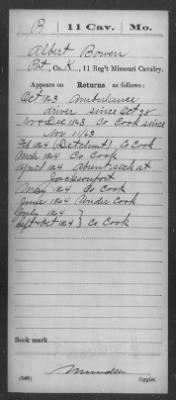 B 11 Cav. Mo.
Albert Bowen
Pvt., Co. K, 11 Reg't Missouri Cavalry.
Appears on Returns as follows:
Oct 1863 Ambulance
driver since Oct 20
Nov & Dec 1863 Co Cook since
Nov 11/63
Feb 1864 (Detchmt) Co Cook
Mch 1864 Co. Cook
April 1864 Absent sick at
Jacksonport
May 1864 Co Cook
June 1864 Under Cook
July 1864
Sept & Oct 1864 } Co Cook
Book mark:
(546) Copyist.